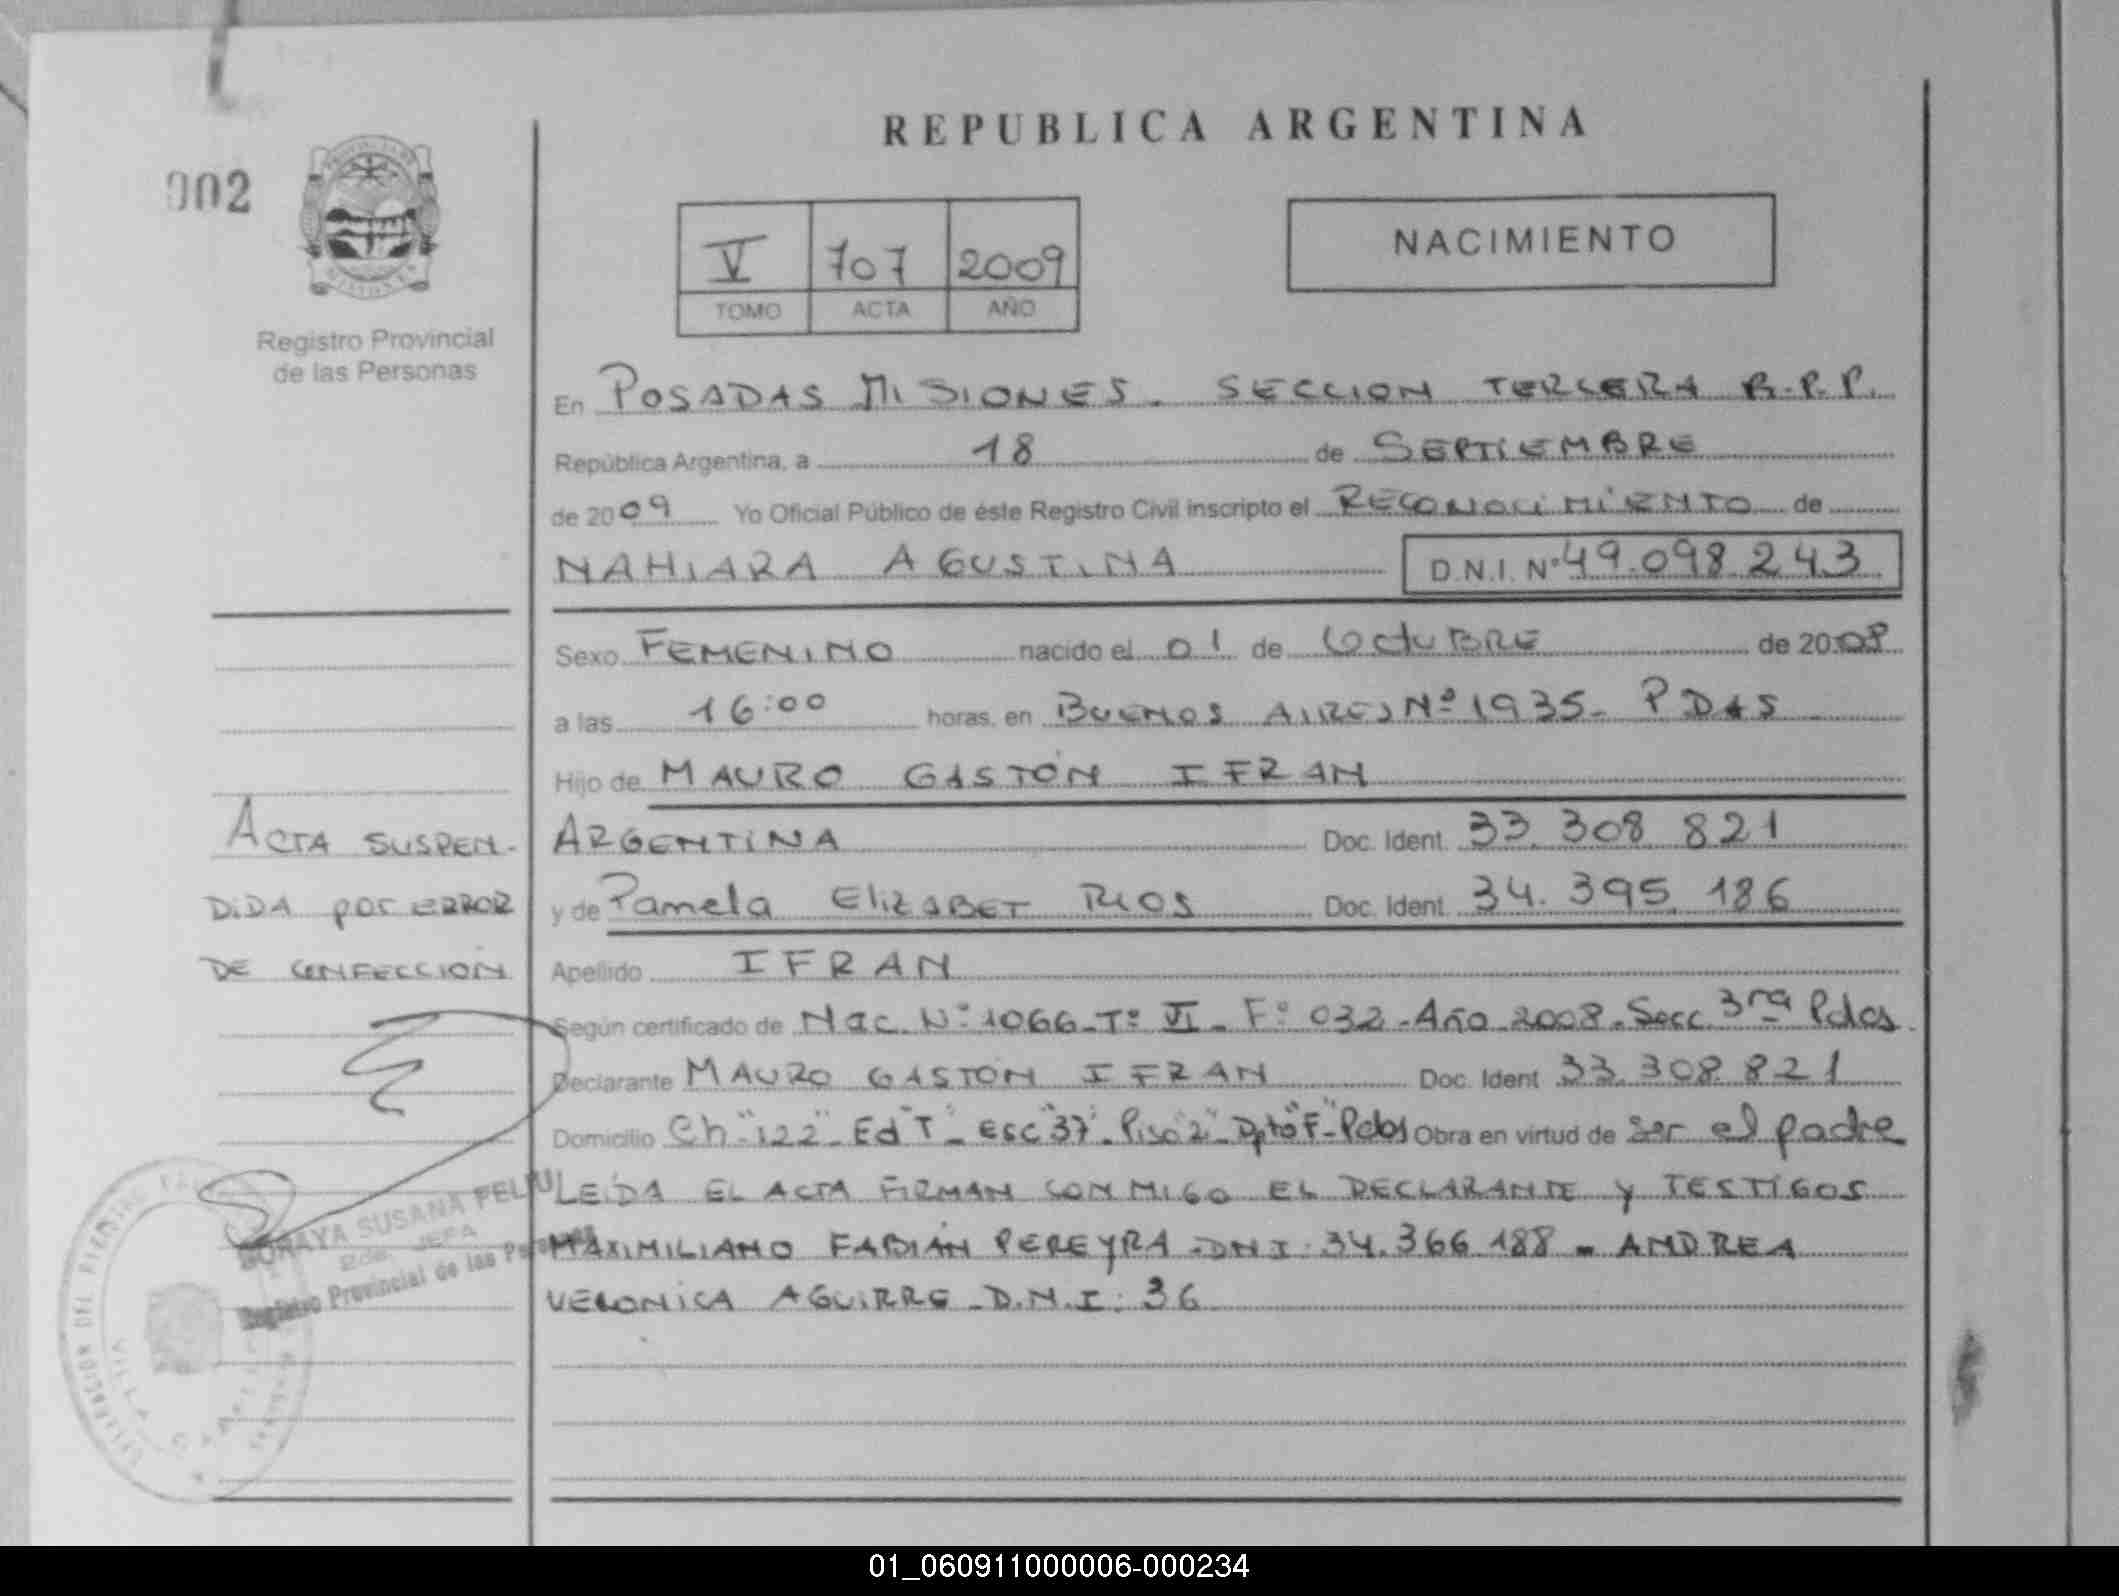 REPUBLICA ARGENTINA
002
NACIMIENTO
V 707 2009
TOMO ACTA AÑO
Registro Provincial
de las Personas
En POSADAS MISIONES. SECCION TERCERA R.P.P.
República Argentina, a 18 de SEPTIEMBRE
de 2009 Yo Oficial Público de éste Registro Civil inscripto el RECONOCIMIENTO de
NAHIARA AGUSTINA D.N.I. Nº 49.098.243
Sexo FEMENINO nacido el 01 de OCTUBRE de 2008
a las 16:00 horas, en BUENOS AIRES Nº 1935- PDAS
Hijo de MAURO GASTÓN IFRAN
ARGENTINA Doc. Ident. 33.308.821
y de Pamela ELIZABET RIOS Doc. Ident. 34.395.186
Apellido IFRAN
Según certificado de Nac. Nº 1066-Tº VI- Fº 032-Año 2008-Secc. 3ra Pdas
Declarante MAURO GASTÓN IFRAN Doc. Ident 33.308.821
Domicilio Ch "122" Ed "T" - Esc "37" - Piso "2" - Dpto "F"- Pdas Obra en virtud de ser el padre
LEIDA EL ACTA FIRMAN CONMIGO EL DECLARANTE y TESTIGOS
MAXIMILIANO FABIÁN PEREYRA-DNI: 34.366.188 - ANDREA
VERONICA AGUIRRE-D.N.I: 36
ACTA SUSPEN-
DIDA por ERROR
DE CONFECCION
SORAYA SUSANA FELIU
JEFA
Registro Provincial de las Personas
01_060911000006-000234